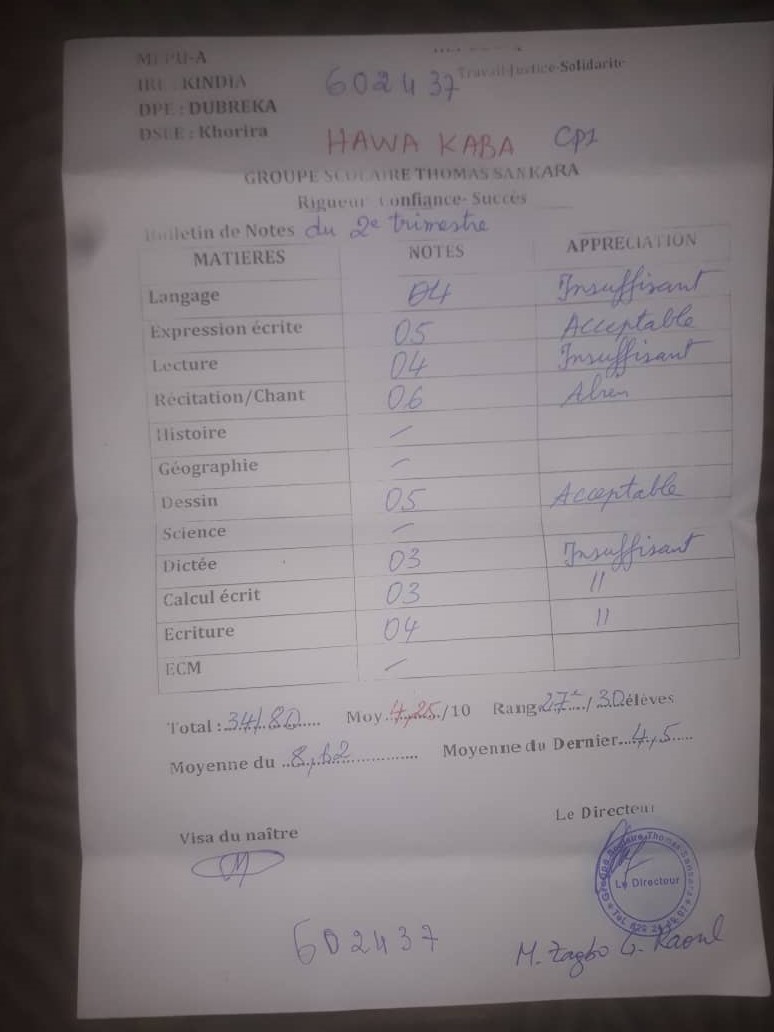 MEPU-A
Travail-Justice-Solidarité
IRE : KINDIA
602437
DPE : DUBREKA
DSEE : Khorira
HAWA KABA CP1
GROUPE SCOLAIRE THOMAS SANKARA
Rigueur Confiance- Succès
Bulletin de Notes du 2e trimestre
MATIERES NOTES APPRECIATION
Langage 04 Insuffisant
Expression écrite 05 Acceptable
Lecture 04 Insuffisant
Récitation/Chant 06 ABien
Histoire —
Géographie —
Dessin 05 Acceptable
Science —
Dictée 03 Insuffisant
Calcul écrit 03 //
Ecriture 04 //
ECM —
Total : 34/80 Moy. 4,25 /10 Rang 27e / 30 élèves
Moyenne du 8,62 Moyenne du Dernier 4,5
Visa du naître
Le Directeur
Groupe Scolaire Thomas Sankara
Le Directeur
602437
M. Zagbo G. Raoul